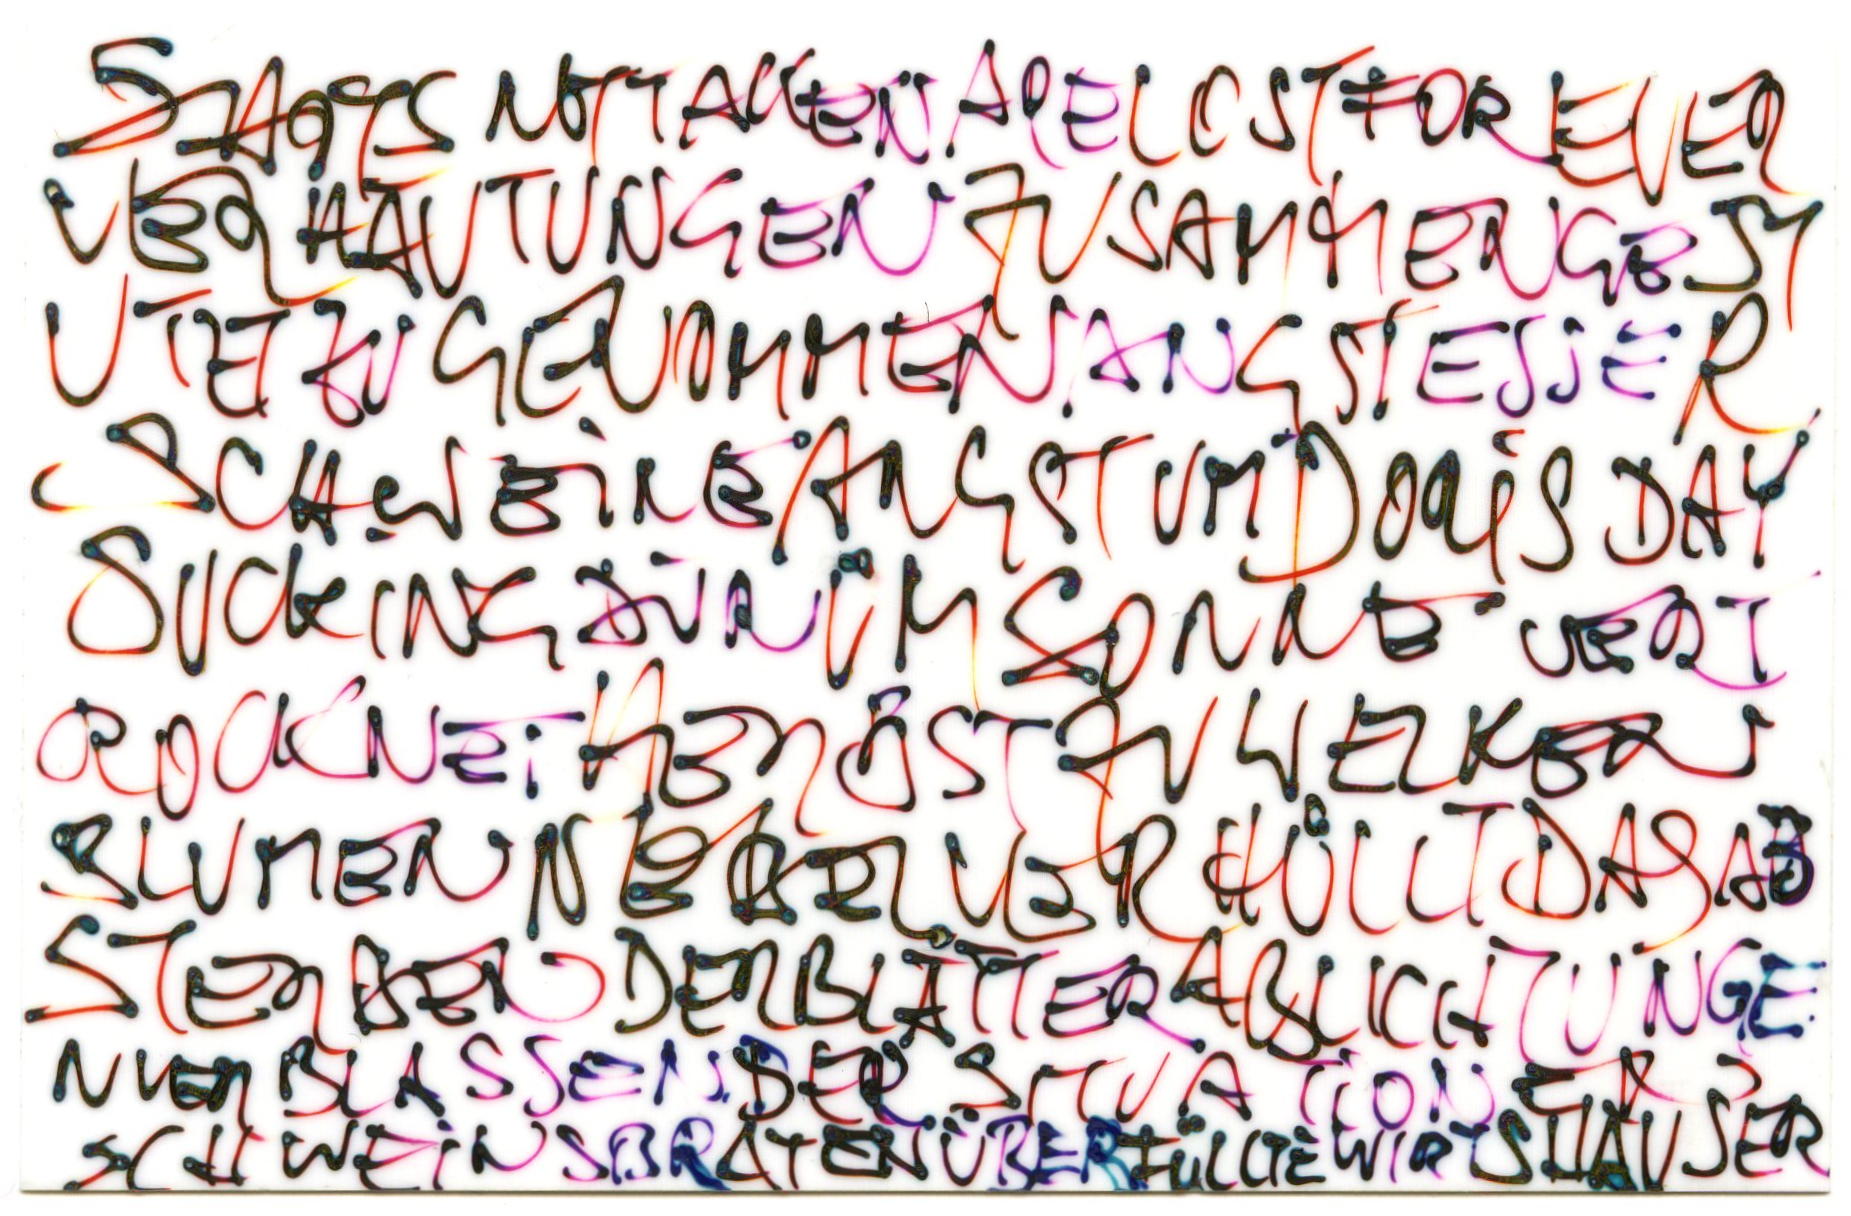 NOTTAKEN APELOSTFOREVER
VERHÄUTUNGEN ZUSAMMENGEST
UTET ZUGENOMMEN ANGSTESSER
SCHWEINEANGSTUM DORIS DAY
SUCKING DÜNÜM SONNE VERT
ROCKNET HERBST ZU WELKEN
BLUMEN NEBEL VERHÜLLT DAS AB
STERBEN DER BLÄTTER ABLICHTUNGE
N VERBLASSEN DER SITUATION ER
SCHWEINSBRATEN ÜBERFÜLLTE WIRTSHÄUSER